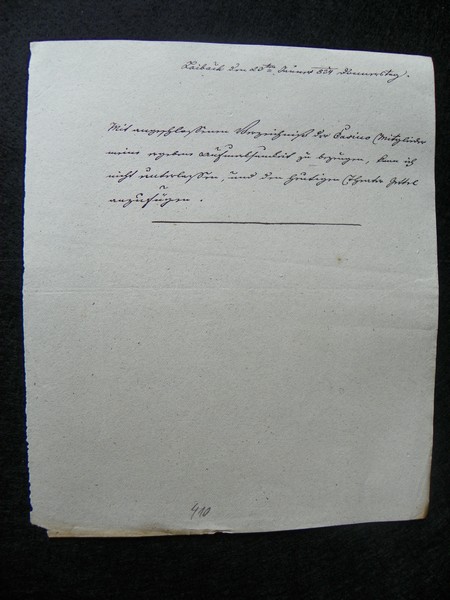 Laibach den 20ten Jänner 859 Donnerstag.
Mit angeschlossenem Verzeichniß der Casino Mitglieder
meine ergebene Aufmerksamkeit zu bezeugen, kann ich
nicht unterlassen, und den heutigen Theater Zettel
anzufügen.
410